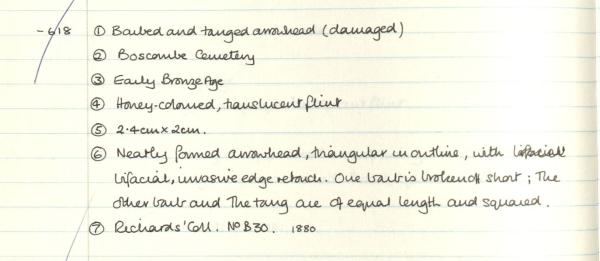 -618 ① Barbed and tanged arrowhead (damaged)
② Boscombe Cemetery
③ Early Bronze Age
④ Honey-coloured, translucent flint
⑤ 2.4cm x 2cm.
⑥ Neatly formed arrowhead, triangular in outline, with
bifacial, invasive edge retouch. One barb is broken off short; The
other barb and The tang are of equal length and squared.
⑦ Richards' Coll. No B30. 1880